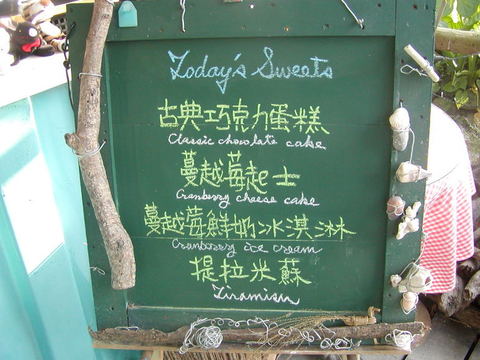 Today's Sweets
古典巧克力蛋糕
Classic chocolate cake
蔓越莓起士
Cranberry cheese cake
蔓越莓鮮奶冰淇淋
Cranberry ice cream
提拉米蘇
Tiramisu